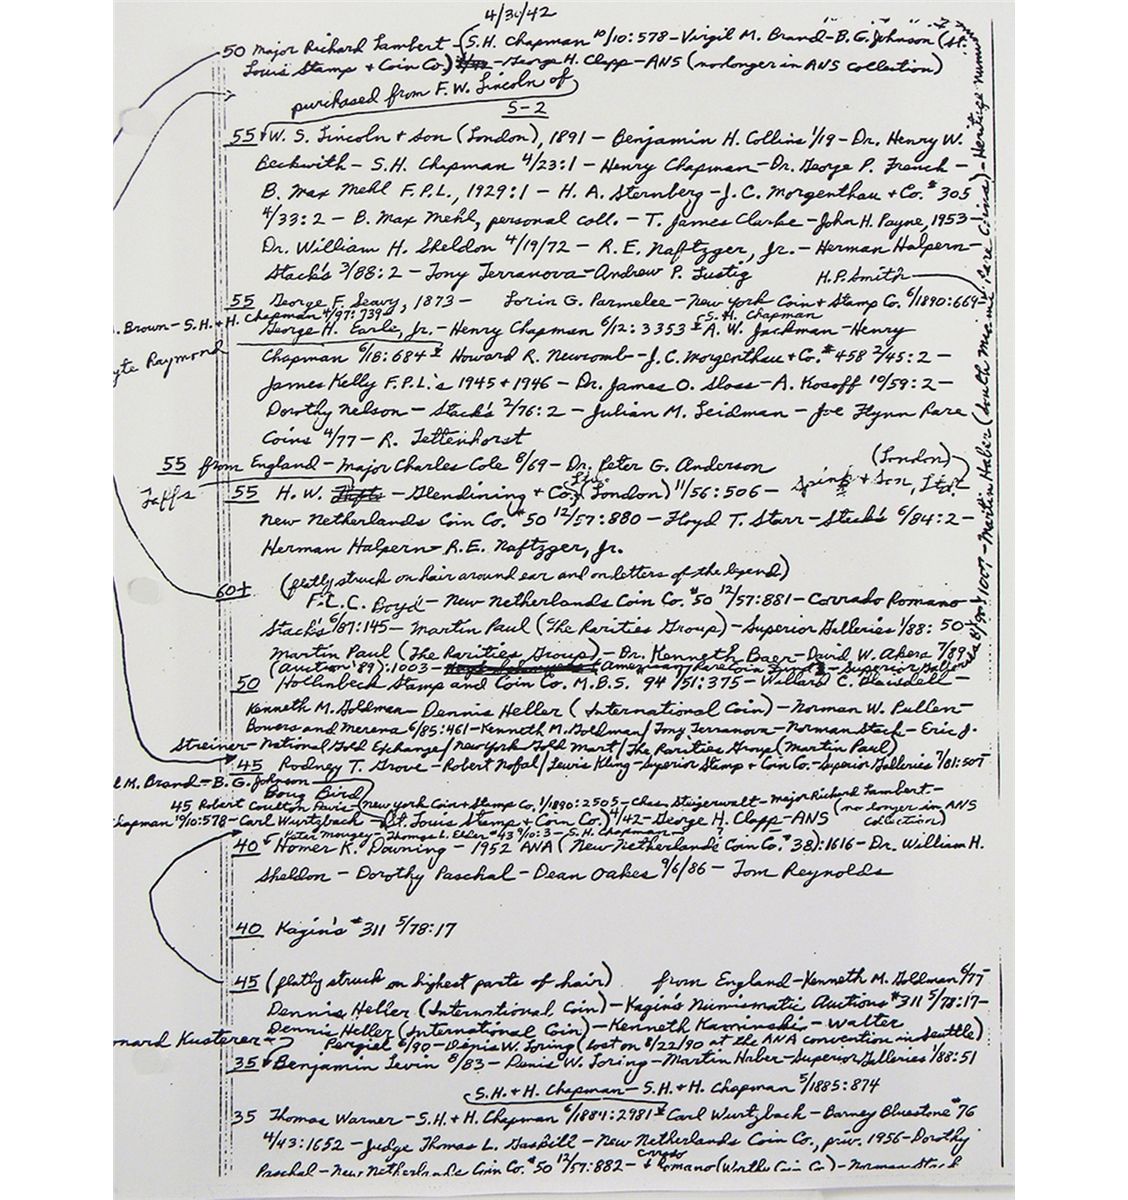 4/30/42
50 Major Richard Lambert - S.H. Chapman 10/10:578 - Virgil M. Brand - B.G. Johnson (St.
Louis Stamp + Coin Co.) - George H. Clapp - ANS (no longer in ANS collection)
purchased from F.W. Lincoln of
S-2
55 W. S. Lincoln + Son (London), 1891 - Benjamin H. Collins 1/19 - Dr. Henry W.
Beckwith - S.H. Chapman 4/23:1 - Henry Chapman - Dr. George P. French -
B. Max Mehl F.P.L., 1929:1 - H. A. Sternberg - J.C. Morgenthau + Co. #305
4/33:2 - B. Max Mehl, personal coll. - T. James Clarke - John H. Payne, 1953
Dr. William H. Sheldon 4/19/72 - R.E. Naftzger, Jr. - Herman Halpern -
Stack's 3/88:2 - Tony Terranova - Andrew P. Lustig
H.P. Smith
55 George F. Seavy, 1873 - Lorin G. Parmelee - New York Coin + Stamp Co. 6/1890:669
. Brown - S.H. + H. Chapman 4/97:739
S.H. Chapman
George H. Earle, Jr. - Henry Chapman 6/12:3353 A.W. Jackman - Henry
yte Raymond
Chapman 6/18:684 Howard R. Newcomb - J.C. Morgenthau + Co. #458 2/45:2 -
James Kelly F.P.L.'s 1945 + 1946 - Dr. James O. Sloss - A. Kosoff 10/59:2 -
Dorothy Nelson - Stack's 2/76:2 - Julian M. Leidman - Joe Flynn Rare
Coins 4/77 - R. Tettenhorst
55 from England - Major Charles Cole 8/69 - Dr. Peter G. Anderson
(London)
Taffs
55 H.W. - Glendining + Co. (London) 11/56:506 - Spink + Son, Ltd.
New Netherlands Coin Co. #50 12/57:880 - Floyd T. Starr - Stack's 6/84:2 -
Herman Halpern - R.E. Naftzger, Jr.
60+ (flatly struck on hair around ear and on letters of the legend)
F.C.C. Boyd - New Netherlands Coin Co. #50 12/57:881 - Corrado Romano
Stack's 6/87:145 - Martin Paul (The Rarities Group) - Superior Galleries 1/88:50 -
Martin Paul (The Rarities Group) - Dr. Kenneth Baer - David W. Akers 7/89
(Auction '89):1003 - American Rare Coin - Superior Galleries
8/90:1007 - Martin Haber (South Miami Rare Coins) - Heritage Numis
50 Hollinbeck Stamp and Coin Co. M.B.S. #94 1/51:375 - Willard C. Blaisdell -
Kenneth M. Goldman - Dennis Heller (International Coin) - Norman W. Pullen -
Bowers and Merena 6/85:461 - Kenneth M. Goldman / Tony Terranova - Norman Stack - Eric J.
Streiner - National Gold Exchange / New York Gold Mart / The Rarities Group (Martin Paul)
45 Rodney T. Grove - Robert Nofal / Lewis Kling - Superior Stamp + Coin Co. - Superior Galleries 7/81:505
l M. Brand - B.G. Johnson
Doug Bird
45 Robert Coulton Davis - New York Coin + Stamp Co. 1/1890:2505 - Chas. Steigerwalt - Major Richard Lambert -
hapman 10/10:578 - Carl Wurtzbach - (St. Louis Stamp + Coin Co.) 4/42 - George H. Clapp - ANS (no longer in ANS collection)
Peter Mougey - Thomas L. Elder #43 9/10:3 - S.H. Chapman - ?
40 Homer K. Downing - 1952 ANA (New Netherlands Coin Co. #38):1616 - Dr. William H.
Sheldon - Dorothy Paschal - Dean Oakes 9/6/86 - Tom Reynolds
40 Kagin's #311 5/78:17
45 (flatly struck on highest parts of hair) from England - Kenneth M. Goldman 6/77
Dennis Heller (International Coin) - Kagin's Numismatic Auctions #311 5/78:17 -
Dennis Heller (International Coin) - Kenneth Kaminski - Walter
Pergiel 6/90 - Denis W. Loring (lost on 8/22/90 at the ANA convention in Seattle)
onard Kusterer - ?
35 Benjamin Levin 8/83 - Denis W. Loring - Martin Haber - Superior Galleries 1/88:51
S.H. + H. Chapman - S.H. + H. Chapman 5/1885:874
35 Thomas Warner - S.H. + H. Chapman 6/1884:2981 Carl Wurtzbach - Barney Bluestone #76
4/43:1652 - Judge Thomas L. Gaskill - New Netherlands Coin Co., priv. 1956 - Dorothy
Paschal - New Netherlands Coin Co. #50 12/57:882 - Corrado Romano (Worthy Coin Co.) - Norman Stack